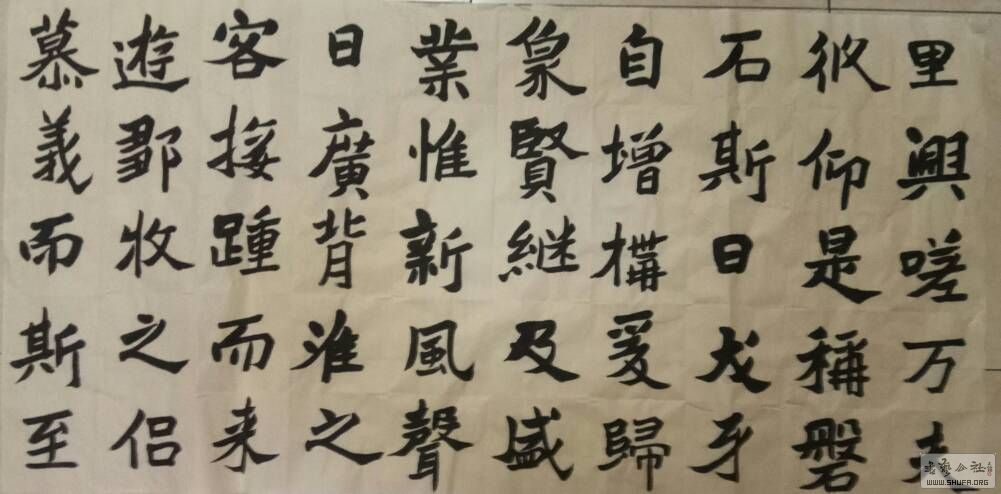 里興嗟万夫
攸仰是稱磐
石斯曰犬牙
自增構爰歸
衆賢継及盛
業惟新風聲
日廣背淮之
客接踵而来
遊鄒收之侣
慕義而斯至
书艺公社
WWW.SHUFA.ORG